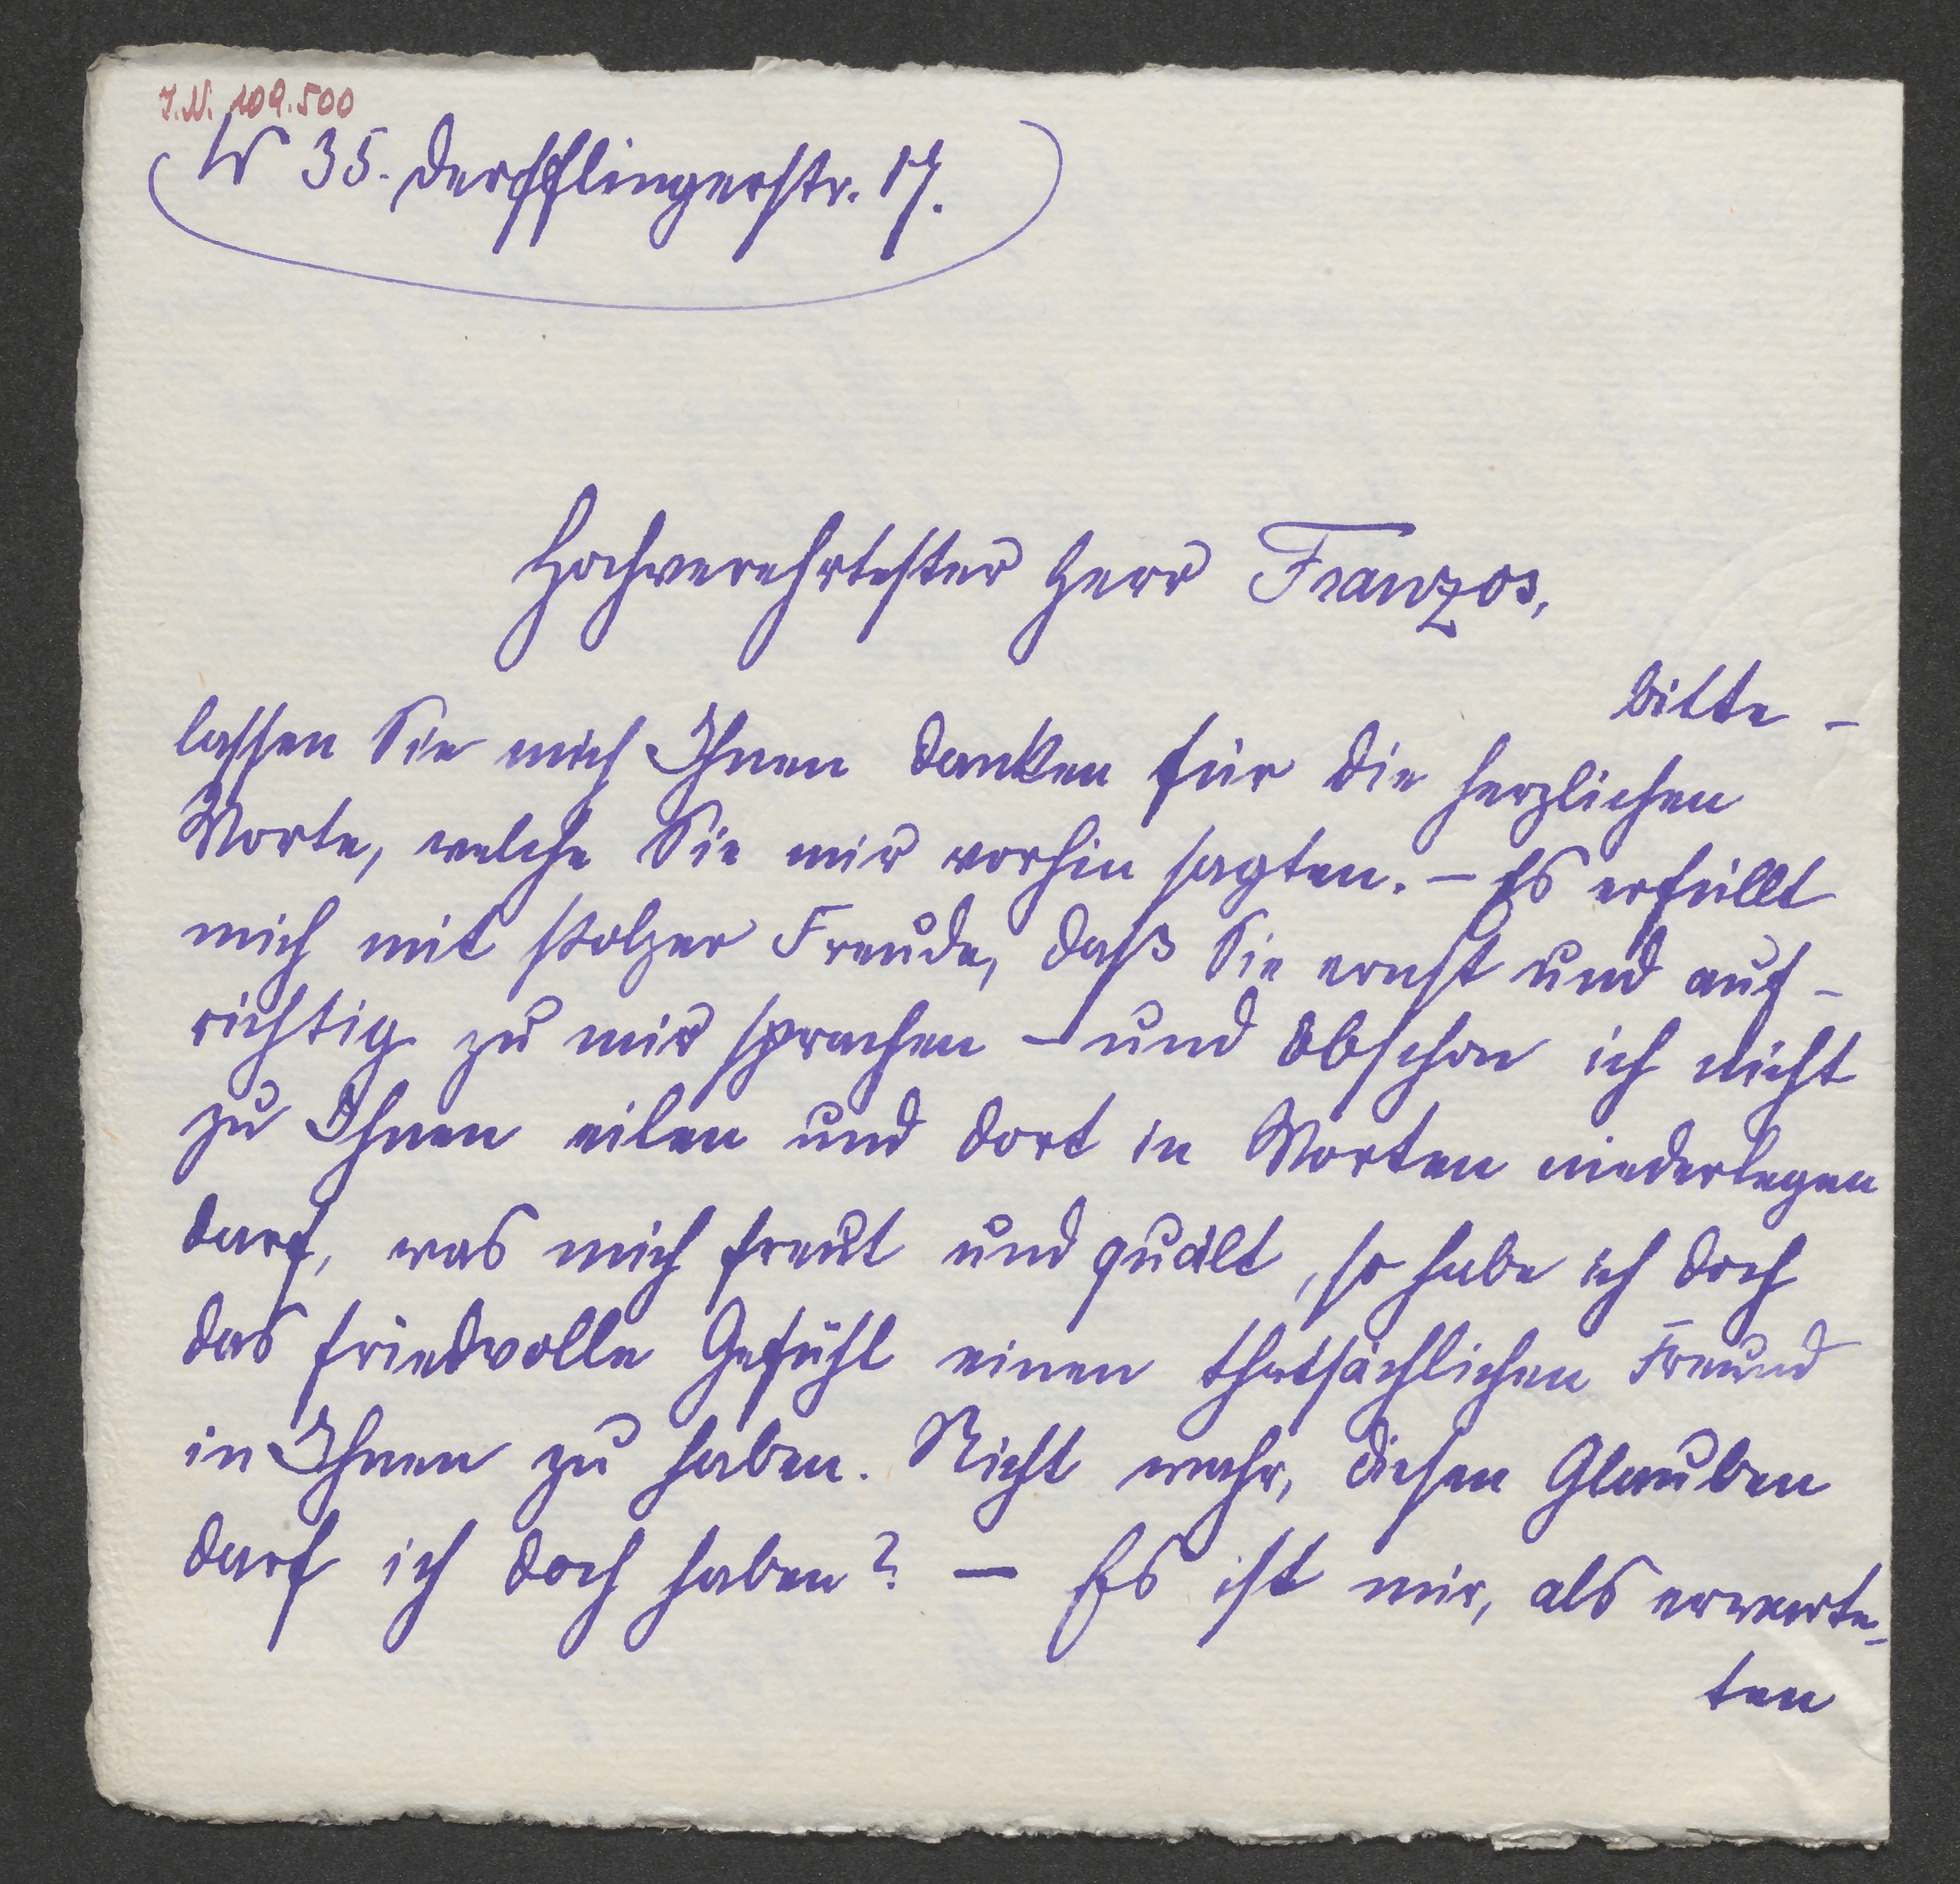 I.N. 109.500
W 35. Derfflingerstr. 17.
Hochverehrtester Herr Franzos,
bitte –
lassen Sie mich Ihnen danken für die herzlichen
Worte, welche Sie mir vorhin sagten. – Es erfüllt
mich mit stolzer Freude, daß Sie ernst und auf-
richtig zu mir sprachen – und obschon ich nicht
zu Ihnen eilen und dort in Worten niederlegen
darf, was mich freut und quält, so habe ich doch
das friedvolle Gefühl einen thatsächlichen Freund
in Ihnen zu haben. Nicht wahr, diesen Glauben
darf ich doch haben? – Es ist mir, als erwarte-
ten